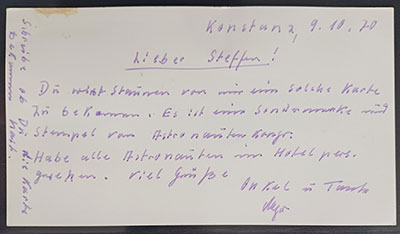 Konstanz, 9.10.70
Lieber Steffen!
Du wirst Staunen von mir eine solche Karte
zu bekommen. Es ist eine Sondermarke und
Stempel vom Astronauten Kongr.
Habe alle Astronauten im Hotel pers.
gesehen. Viel Grüße
Onkel u Tante
Schreibe ob Du die Karte
bekommen hast.